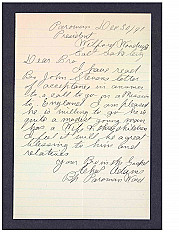 Parowan Dec 30/01
President
Wilford Woodruff
Salt Lake City
Dear Bro
I have read
Bro John Stevens letter
of acceptance in answer
to a call to go on a Mission
to England. I am pleased
he is willing to go he is
quite a modest young man
has a Wife & children
I feel it will be a great
blessing to him and
relatives
your Bro in the Gospel
Adams
Bp. Parowan Ward